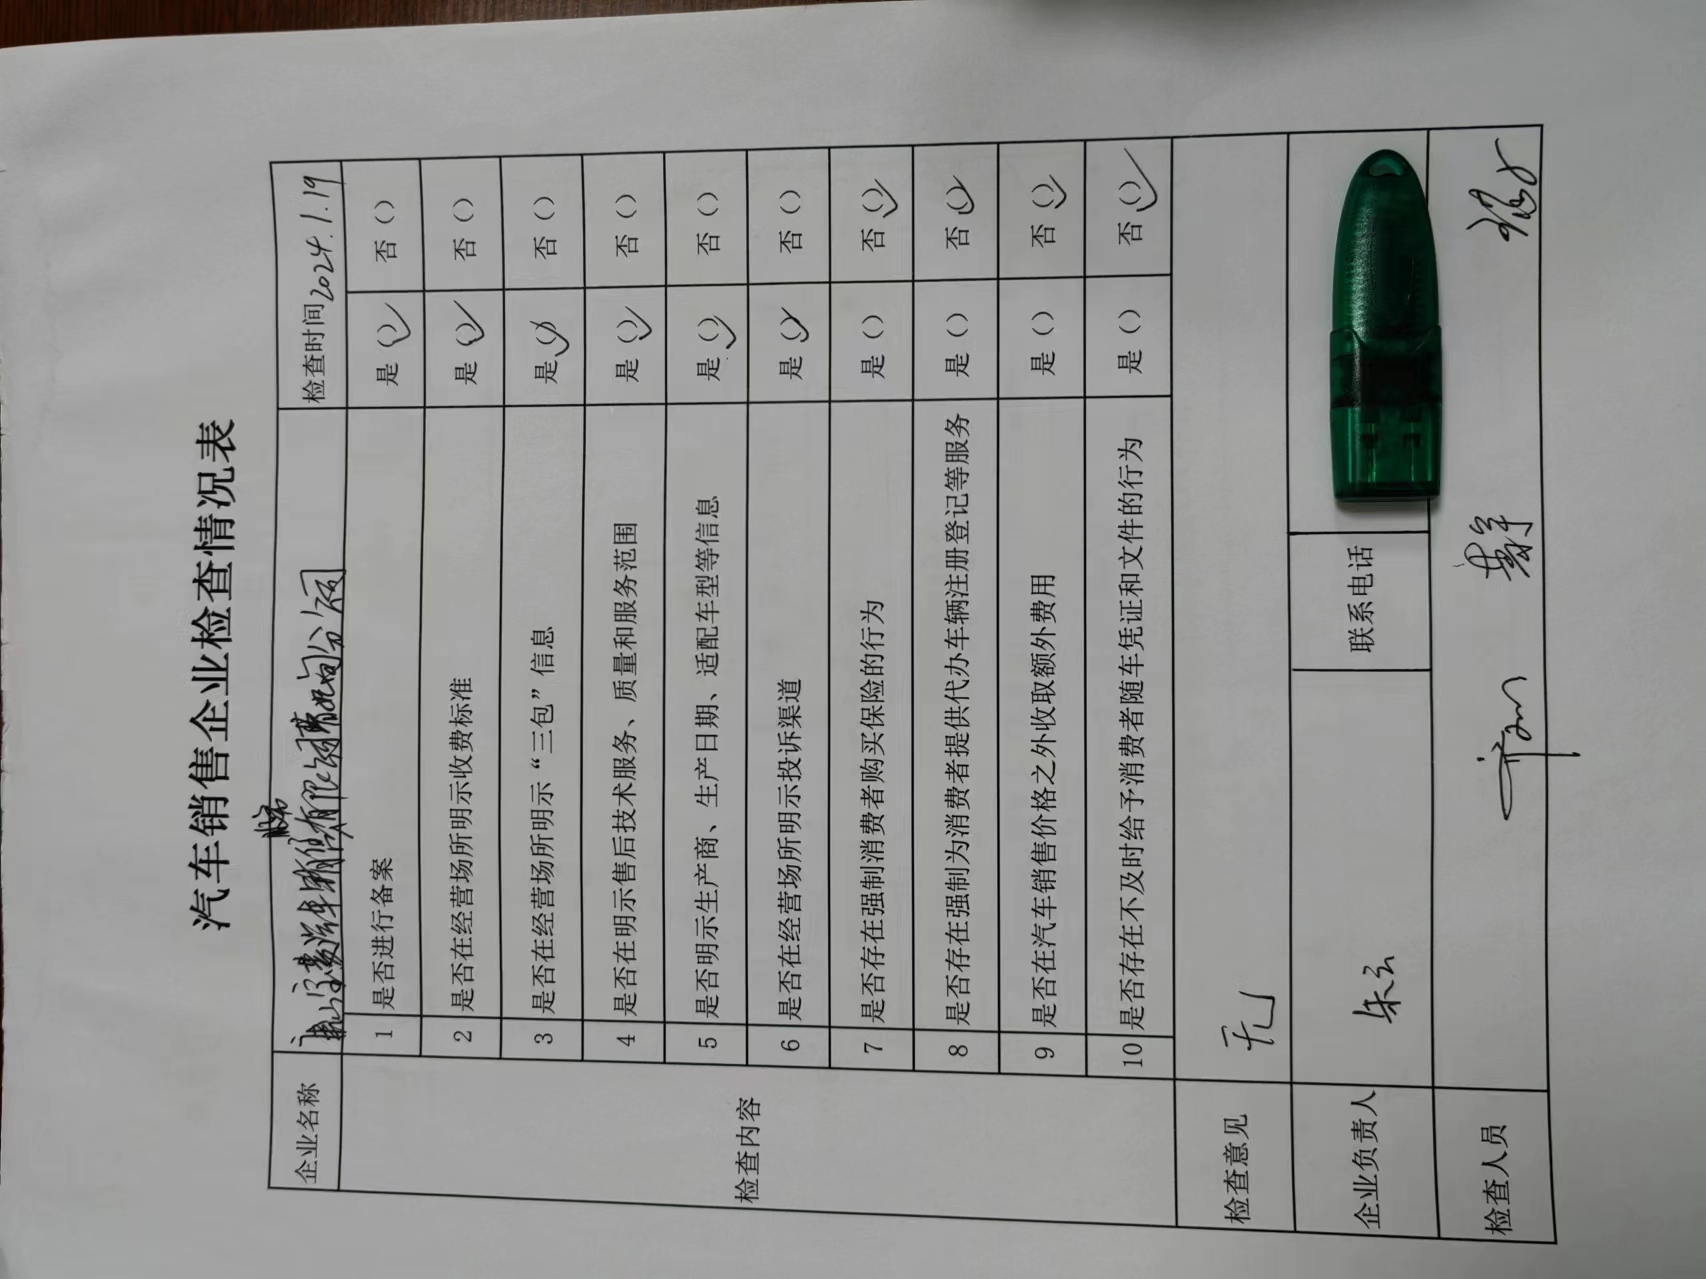 汽车销售企业检查情况表
企业名称 汽车销售有限公司 分公司 检查时间 2024.1.19
检查内容
1 是否进行备案 是(√) 否()
2 是否在经营场所明示收费标准 是(√) 否()
3 是否在经营场所明示“三包”信息 是(√) 否()
4 是否在明示售后技术服务、质量和服务范围 是(√) 否()
5 是否明示生产商、生产日期、适配车型等信息 是(√) 否()
6 是否在经营场所明示投诉渠道 是(√) 否()
7 是否存在强制消费者购买保险的行为 是() 否(√)
8 是否存在强制为消费者提供代办车辆注册登记等服务 是() 否(√)
9 是否在汽车销售价格之外收取额外费用 是() 否(√)
10 是否存在不及时给予消费者随车凭证和文件的行为 是() 否(√)
检查意见 无
企业负责人 朱云 联系电话
检查人员